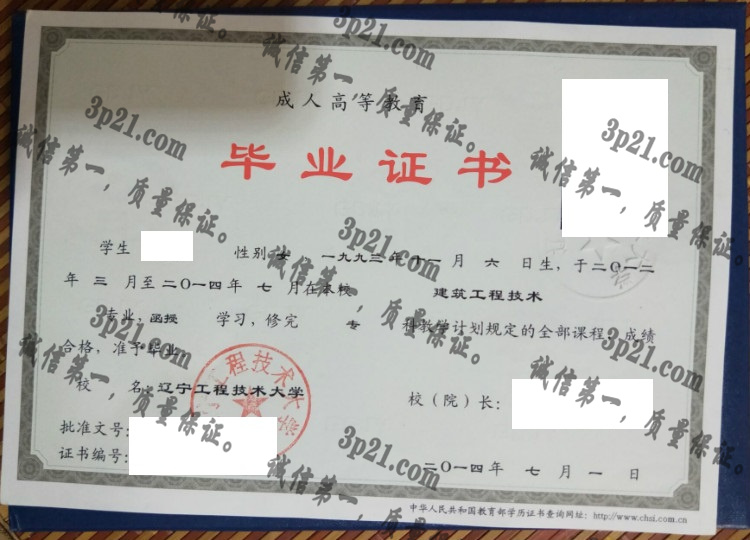 成人高等教育
毕业证书
学生 性别 女 一九九二年十一月 六 日生，于二〇一二
年 三 月至二〇一四年 七 月在本校 建筑工程技术
专业，函授 学习，修完 专 科教学计划规定的全部课程，成绩
合格，准予毕业
校 名：辽宁工程技术大学
校（院）长：
批准文号：
证书编号：
二〇一四年 七 月 一 日
中华人民共和国教育部学历证书查询网址：http://www.chsi.com.cn
工程技术大
3p21.com
诚信第一，质量保证。
3p21.com
诚信第一，质量保证。
3p21.com
诚信第一，质量保证。
3p21.com
诚信第一，质量保证。
3p21.com
诚信第一，质量保证。
3p21.com
诚信第一，质量保证。
3p21.com
诚信第一，质量保证。